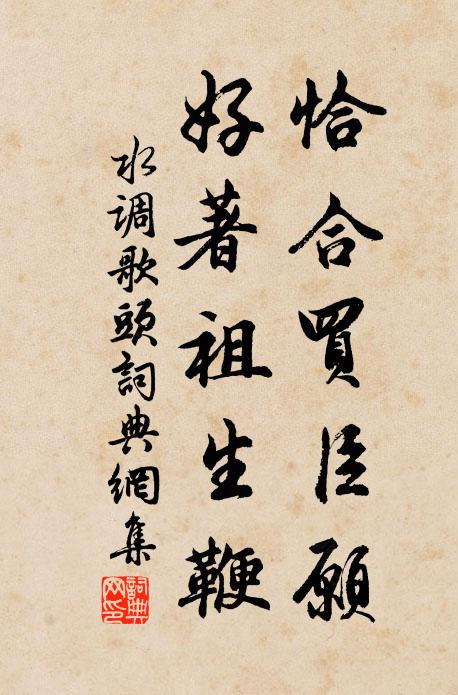 恰合買臣願
好著祖生鞭
水调歌頭詞典網集
詞典
网印